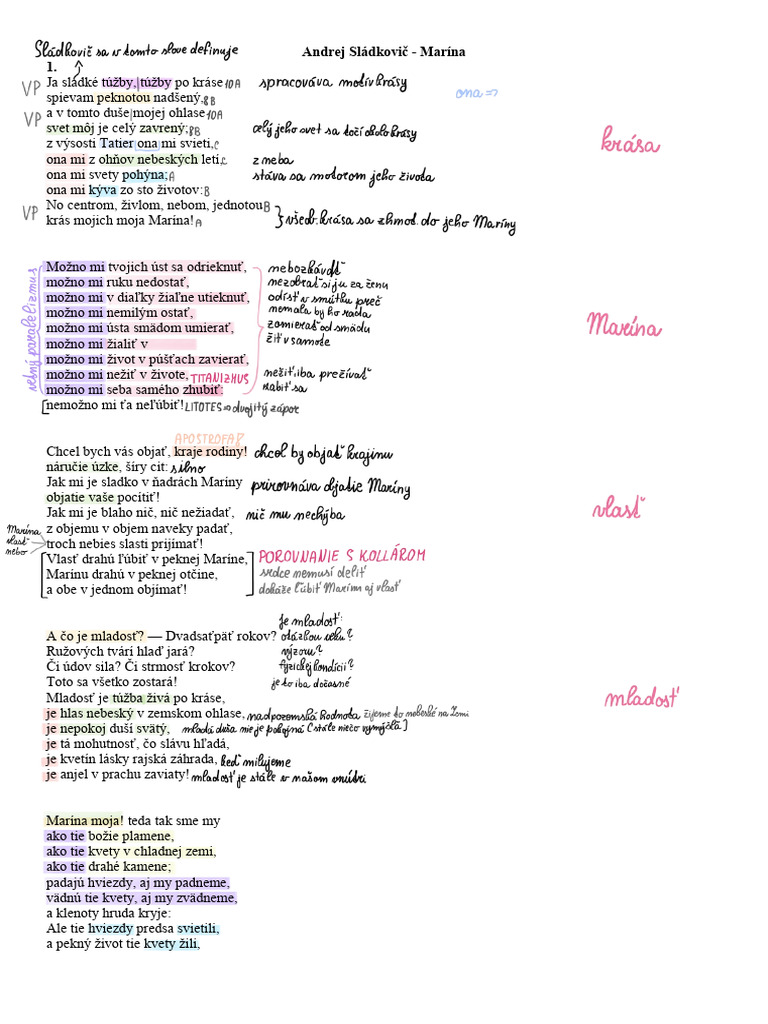 Sládkovič sa v tomto slove definuje
Andrej Sládkovič - Marína
1.
VP Ja sládké túžby, túžby po kráse 10A spracováva motív krásy
spievam peknotou nadšený, 8B ona =>
VP a v tomto duše mojej ohlase 10A
svet môj je celý zavrený; 8B celý jeho svet sa točí okolo krásy
krása
z výsosti Tatier ona mi svieti, C
ona mi z ohňov nebeských letí, C z neba
ona mi svety pohýna; A stáva sa motorom jeho života
ona mi kýva zo sto životov: B
VP No centrom, živlom, nebom, jednotou B
krás mojich moja Marína! A všeob. krása sa zhmot. do jeho Maríny
vetný paralelizmus
Možno mi tvojich úst sa odrieknuť, nebozkávať
možno mi ruku nedostať, nezobrať si ju za ženu
možno mi v diaľky žiaľne utieknuť, odísť v smútku preč
možno mi nemilým ostať, nemala by ho rada
možno mi ústa smädom umierať, zomierať od smädu
Marína
možno mi žialiť v žiť v samote
možno mi život v púšťach zavierať,
možno mi nežiť v živote, TITANIZMUS nežiť, iba prežívať
možno mi seba samého zhubiť: zabiť sa
nemožno mi ťa neľúbiť! LITOTES => dvojitý zápor
APOSTROFA
Chcel bych vás objať, kraje rodiny! chcel by objať krajinu
náručie úzke, šíry cit: silno
Jak mi je sladko v ňadrách Maríny prirovnáva objatie Maríny
objatie vaše pocítiť!
Jak mi je blaho nič, nič nežiadať, nič mu nechýba
vlasť
z objemu v objem naveky padať,
Marína
vlasť
nebo
troch nebies slasti prijímať!
Vlasť drahú ľúbiť v peknej Maríne, POROVNANIE S KOLLÁROM
Marínu drahú v peknej otčine, srdce nemusí deliť
a obe v jednom objímať! dokáže ľúbiť Marínu aj vlasť
je mladosť:
A čo je mladosť? — Dvadsaťpäť rokov? otázkou veku?
Ružových tvárí hlaď jará? výzoru?
Či údov sila? Či strmosť krokov? fyzickej kondícii?
Toto sa všetko zostará! je to iba dočasné
Mladosť je túžba živá po kráse,
mladosť
je hlas nebeský v zemskom ohlase, nadpozemská hodnota žijeme to nebeské na Zemi
je nepokoj duší svätý, mladá duša nie je pokojná (stále niečo vymýšľa)
je tá mohutnosť, čo slávu hľadá,
je kvetín lásky rajská záhrada, keď milujeme
je anjel v prachu zaviaty! mladosť je stále v našom vnútri
Marína moja! teda tak sme my
ako tie božie plamene,
ako tie kvety v chladnej zemi,
ako tie drahé kamene;
padajú hviezdy, aj my padneme,
vädnú tie kvety, aj my zvädneme,
a klenoty hruda kryje:
Ale tie hviezdy predsa svietili,
a pekný život tie kvety žili,